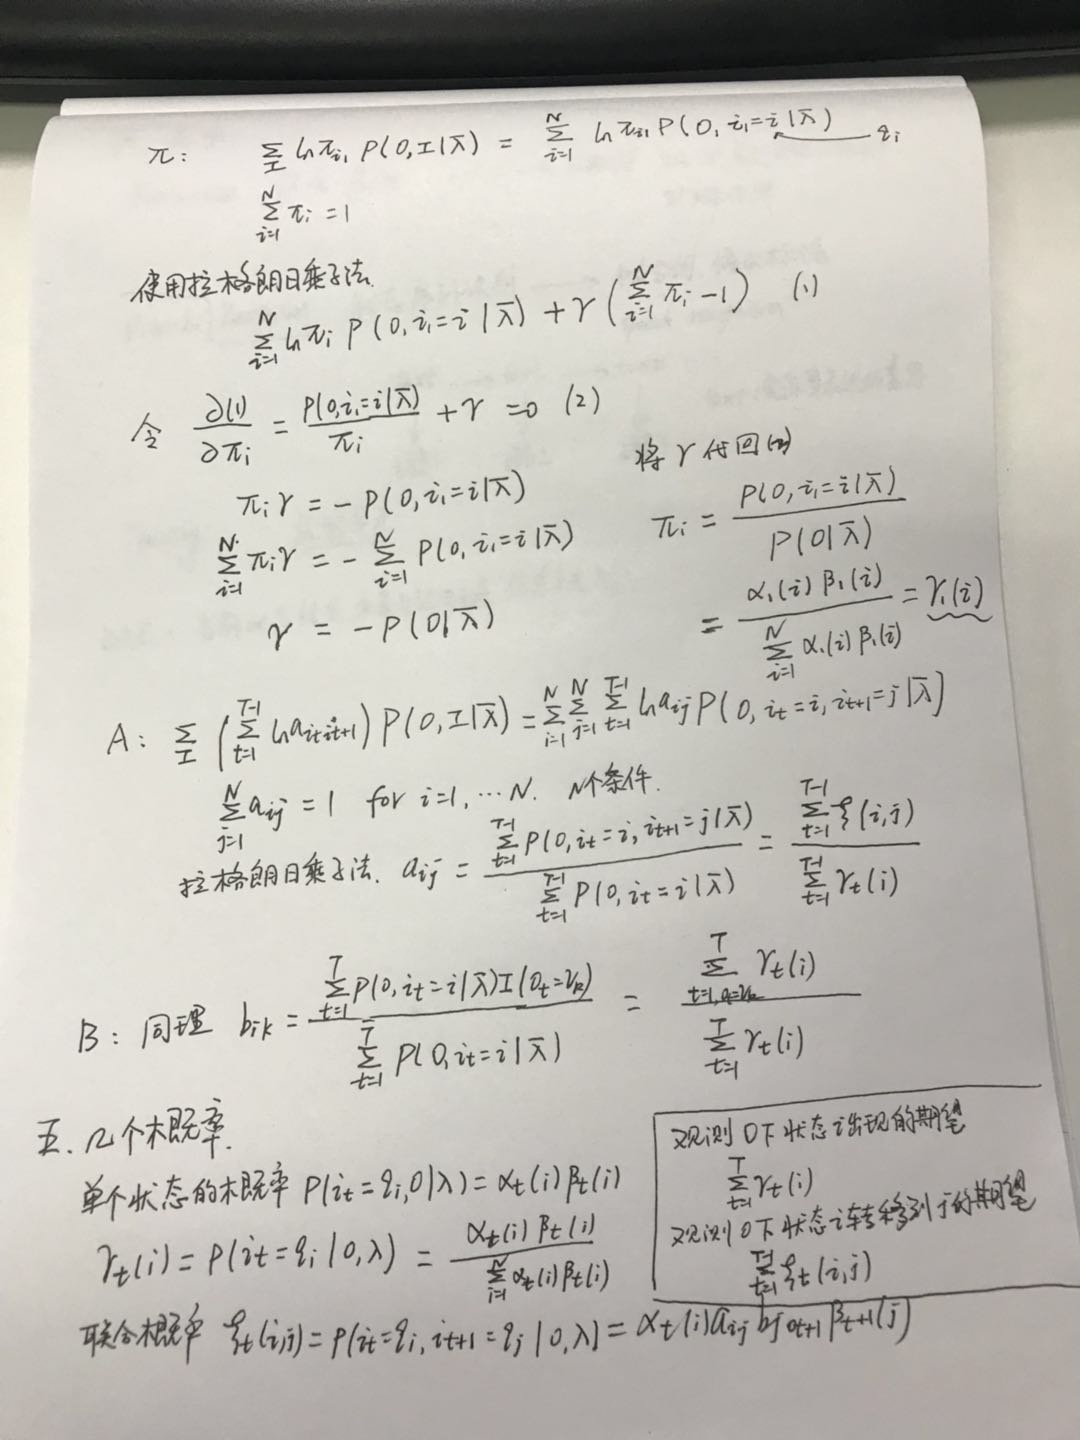 π: ∑_I lnπ_{i₁} P(O,I|λ̄) = ∑_{i=1}^{N} lnπ_{i₁} P(O, i₁=i|λ̄) ← q_i
∑_{i=1}^{N} π_i = 1
使用拉格朗日乘子法.
∑_{i=1}^{N} lnπ_i P(O, i₁=i|λ̄) + γ(∑_{i=1}^{N} π_i -1) (1)
令 ∂(1)/∂π_i = P(O,i₁=i|λ̄)/π_i + γ = 0 (2)
π_i γ = - P(O, i₁=i|λ̄)
∑_{i=1}^{N} π_i γ = - ∑_{i=1}^{N} P(O, i₁=i|λ̄)
γ = - P(O|λ̄)
将γ代回(2)
π_i = P(O, i₁=i|λ̄)/P(O|λ̄)
= α₁(i)β₁(i)/∑_{i=1}^{N} α₁(i)β₁(i) = γ₁(i)
A: ∑_I (∑_{t=1}^{T-1} ln a_{i_t i_{t+1}}) P(O,I|λ̄) = ∑_{i=1}^{N} ∑_{j=1}^{N} ∑_{t=1}^{T-1} ln a_{ij} P(O, i_t=i, i_{t+1}=j|λ̄)
∑_{j=1}^{N} a_{ij} = 1 for i=1, ⋯ N. N个条件.
拉格朗日乘子法. a_{ij} = ∑_{t=1}^{T-1} P(O, i_t=i, i_{t+1}=j|λ̄)/∑_{t=1}^{T-1} P(O, i_t=i|λ̄) = ∑_{t=1}^{T-1} ξ(i,j)/∑_{t=1}^{T-1} γ_t(i)
B: 同理 b_{ik} = ∑_{t=1}^{T} P(O, i_t=i|λ̄)I(O_t=v_k)/∑_{t=1}^{T} P(O, i_t=i|λ̄) = ∑_{t=1,o_t=v_k}^{T} γ_t(i)/∑_{t=1}^{T} γ_t(i)
五. 几个概率.
单个状态的概率 P(i_t=q_i,O|λ) = α_t(i)β_t(i)
γ_t(i) = P(i_t=q_i|O,λ) = α_t(i)β_t(i)/∑_{i=1}^{N} α_t(i)β_t(i)
联合概率 ξ_t(i,j) = P(i_t=q_i, i_{t+1}=q_j|O,λ) = α_t(i)a_{ij} b_{j o_{t+1}} β_{t+1}(j)
观测O下状态i出现的期望
∑_{t=1}^{T} γ_t(i)
观测O下状态i转移到j的期望
∑_{t=1}^{T-1} ξ_t(i,j)